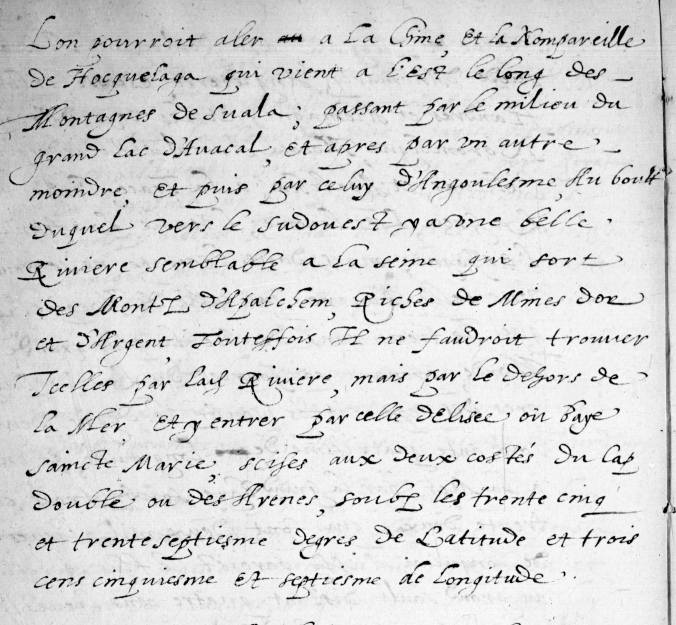 Lon pourroit aler a La Chine, Et la Nompareille
de Hocquelaga qui vient a L'Est le long des
Montagnes de Suala; passant par le milieu du
grand Lac d'Avacal, Et apres par un autre
moindre, Et puis par celuy d'Angoulesme, Au boutt
Duquel vers le Sudouest y a une belle
Riviere semblable a La Seine qui sort
des Montz d'Apalchem, Riches de Mines dor
et d'Argent Touteffois Il ne faudroit trouver
Icelles par lad Riviere, mais par le dehors de
la Mer, Et y entrer par celle delisee ou baye
saincte Marie, scises aux deux costés du Cap
double ou des Arenes, soubz les trente cinq
et trente septiesme degres de Latitude et trois
cens cinquiesme Et septiesme de longitude.